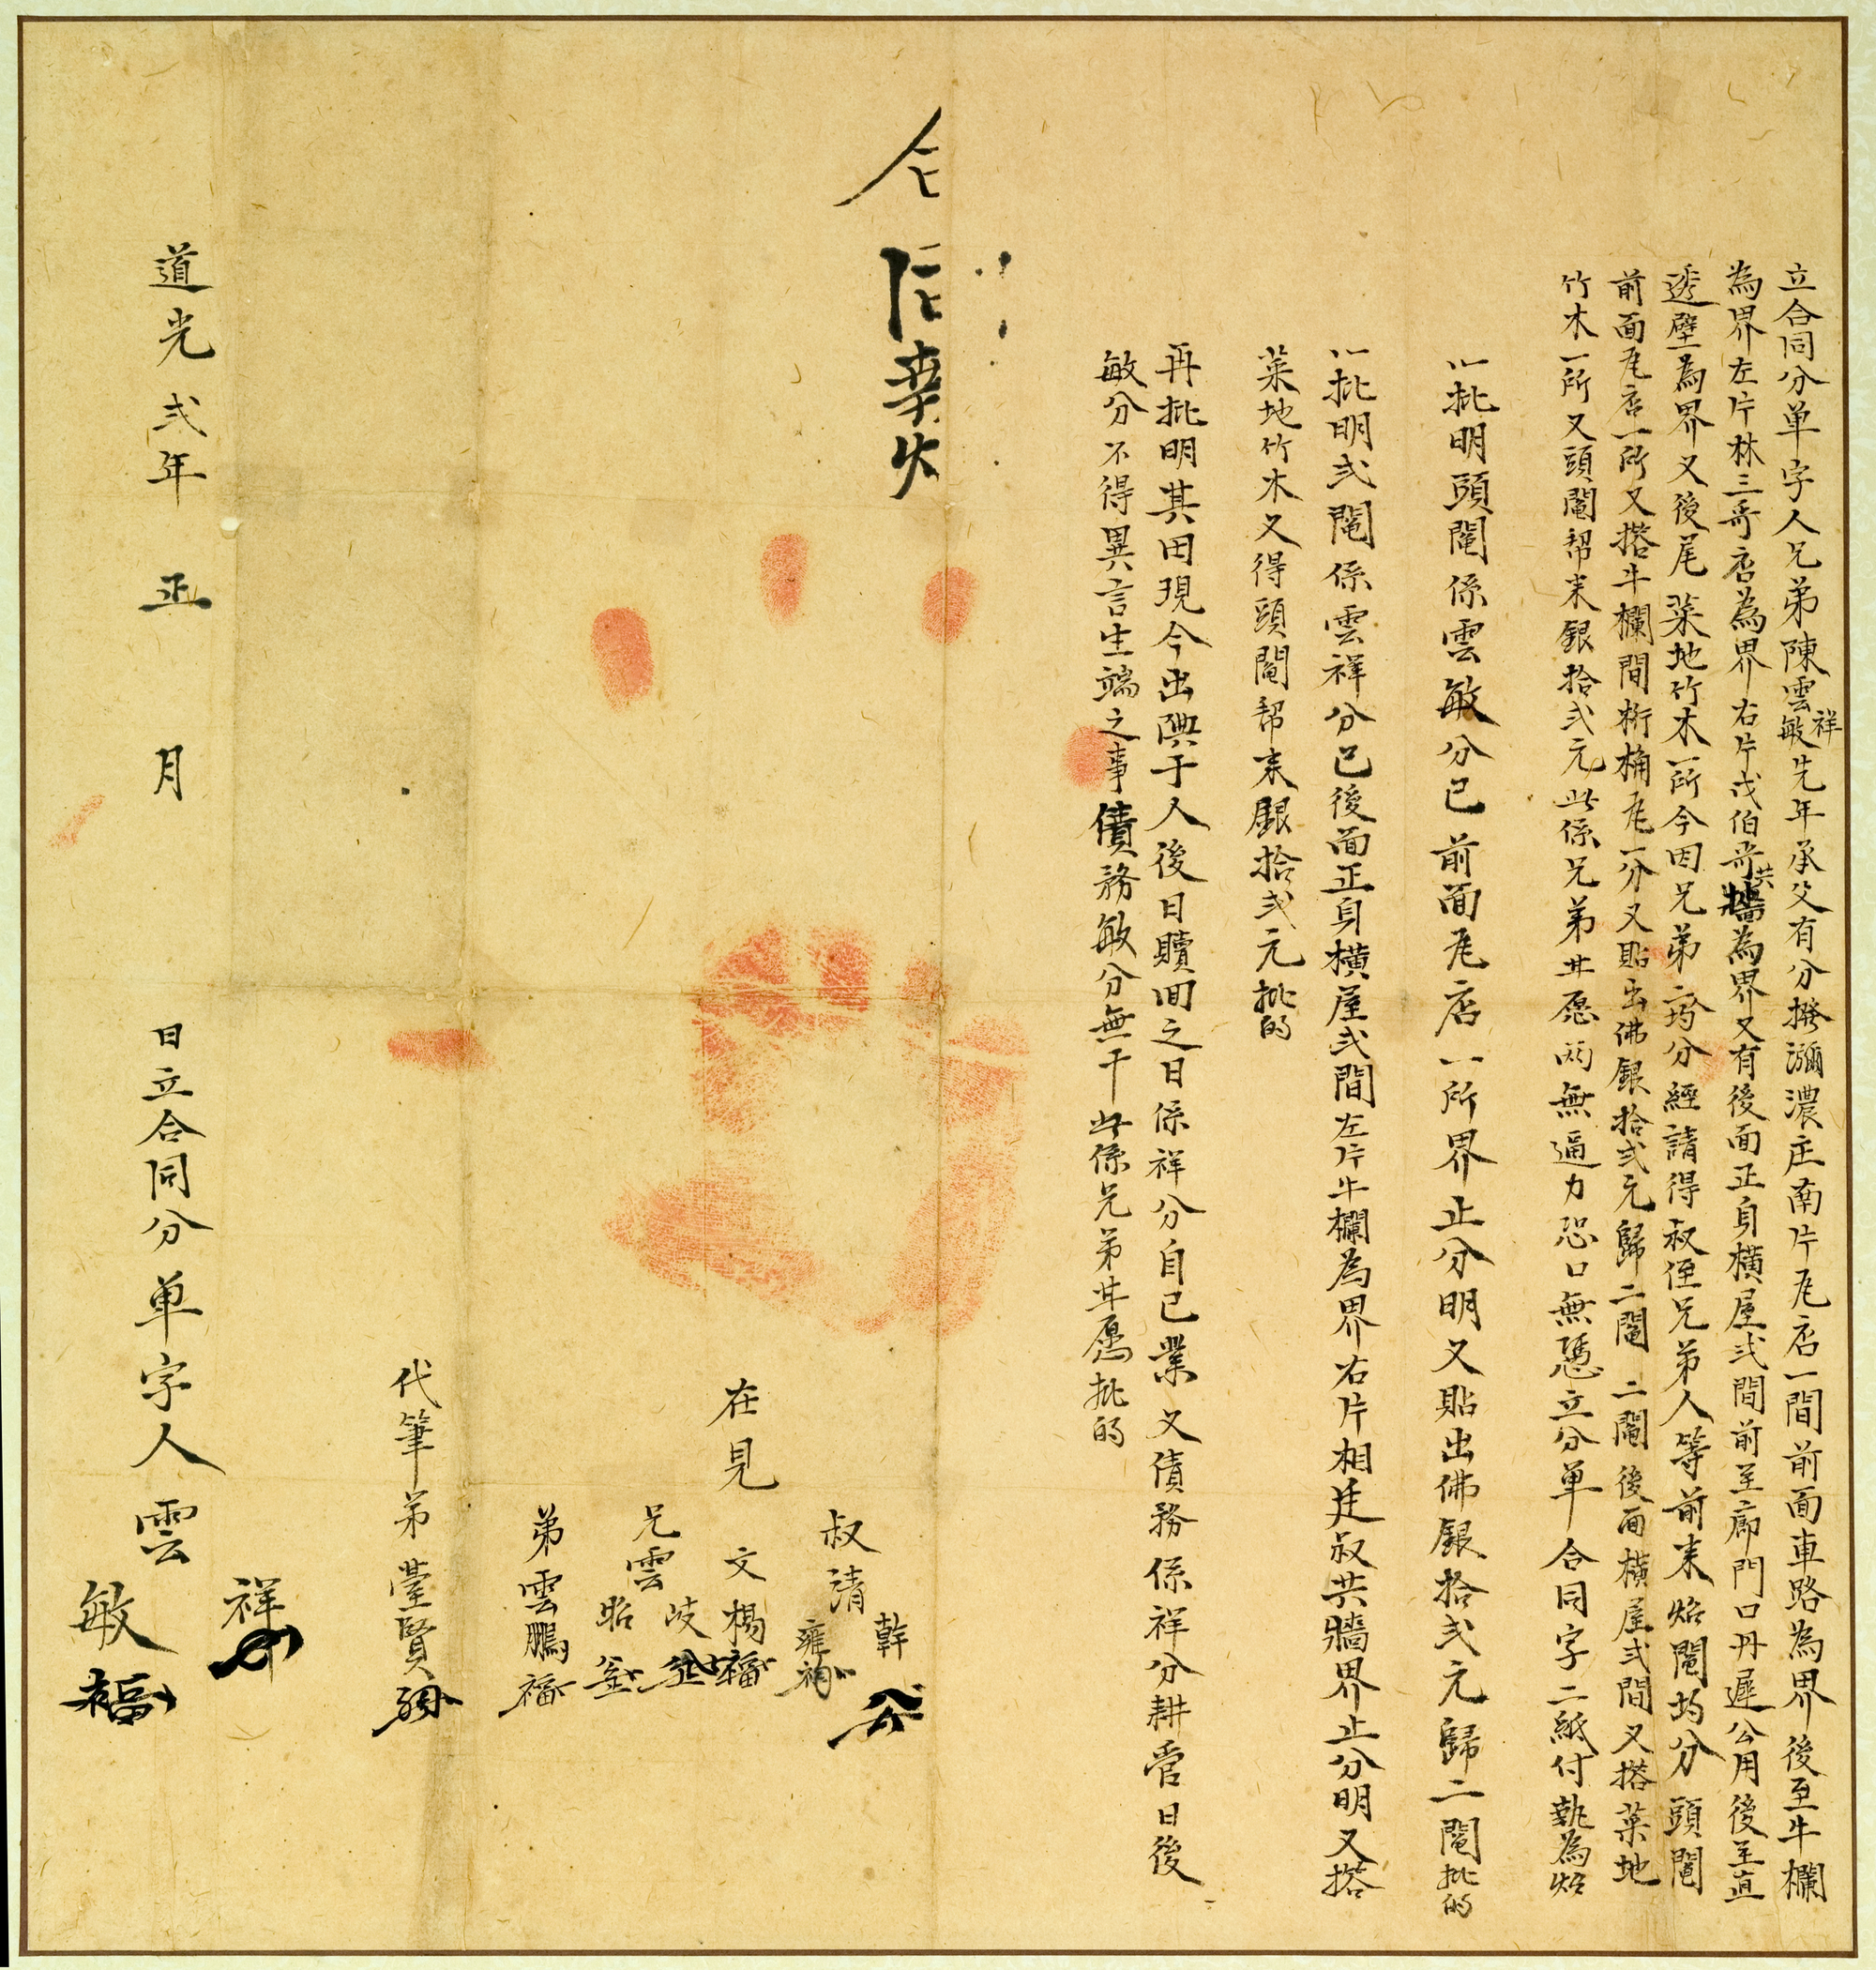 立合同分单字人兄弟陳雲祥敏先年承父有分撥瀰濃庄南片瓦店一間前面車路為界後至牛欄
為界左片林三哥店為界右片戊伯哥共牆為界又有後面正身横屋弍間前至廊門口丹墀公用後至直
透壁為界又後尾菜地竹木一所今因兄弟二均分經請得叔侄兄弟人等前来炤鬮均分頭鬮
前面瓦店一所又搭牛欄間桁桷瓦一分又貼出佛銀拾弍元歸二鬮二鬮後面横屋弍間又搭菜地
竹木一所又頭鬮帮来銀拾弍元此係兄弟甘愿两無逼力恐口無憑立分单合同字二紙付執為炤
一批明頭鬮係雲敏分已前面瓦店一所界止分明又貼出佛銀拾弍元歸二鬮批的
一批明弍鬮係雲祥分已後面正身横屋弍間左片牛欄為界右片相廷叔共牆界止分明又搭
菜地竹木又得頭鬮帮来銀拾弍元批的
再批明其田現今出典于人後日贖囬之日係祥分自己業又債務係祥分耕管日後
敏分不得異言生端之事債務敏分無干此係兄弟甘愿批的
在見
叔清幹
雍
文楊
兄雲岐
昭
弟雲鵬
代筆弟瑩賢
道光弍年正月日立合同分单字人雲祥
敏